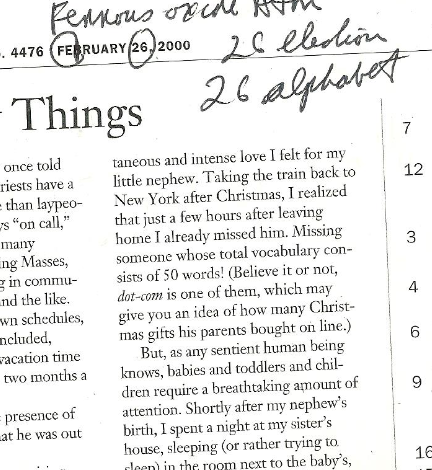 Ferrous oxide Atom
. 4476 FEBRUARY 26, 2000
26 election
26 alphabet
Things
once told
riests have a
than laypeo-
s "on call,"
many
ing Masses,
g in commu-
nd the like.
wn schedules,
ncluded,
vacation time
two months a
presence of
at he was out
taneous and intense love I felt for my
little nephew. Taking the train back to
New York after Christmas, I realized
that just a few hours after leaving
home I already missed him. Missing
someone whose total vocabulary con-
sists of 50 words! (Believe it or not,
dot-com is one of them, which may
give you an idea of how many Christ-
mas gifts his parents bought on line.)
But, as any sentient human being
knows, babies and toddlers and chil-
dren require a breathtaking amount of
attention. Shortly after my nephew's
birth, I spent a night at my sister's
house, sleeping (or rather trying to
sleep) in the room next to the baby's,
7
12
3
4
6
9
16